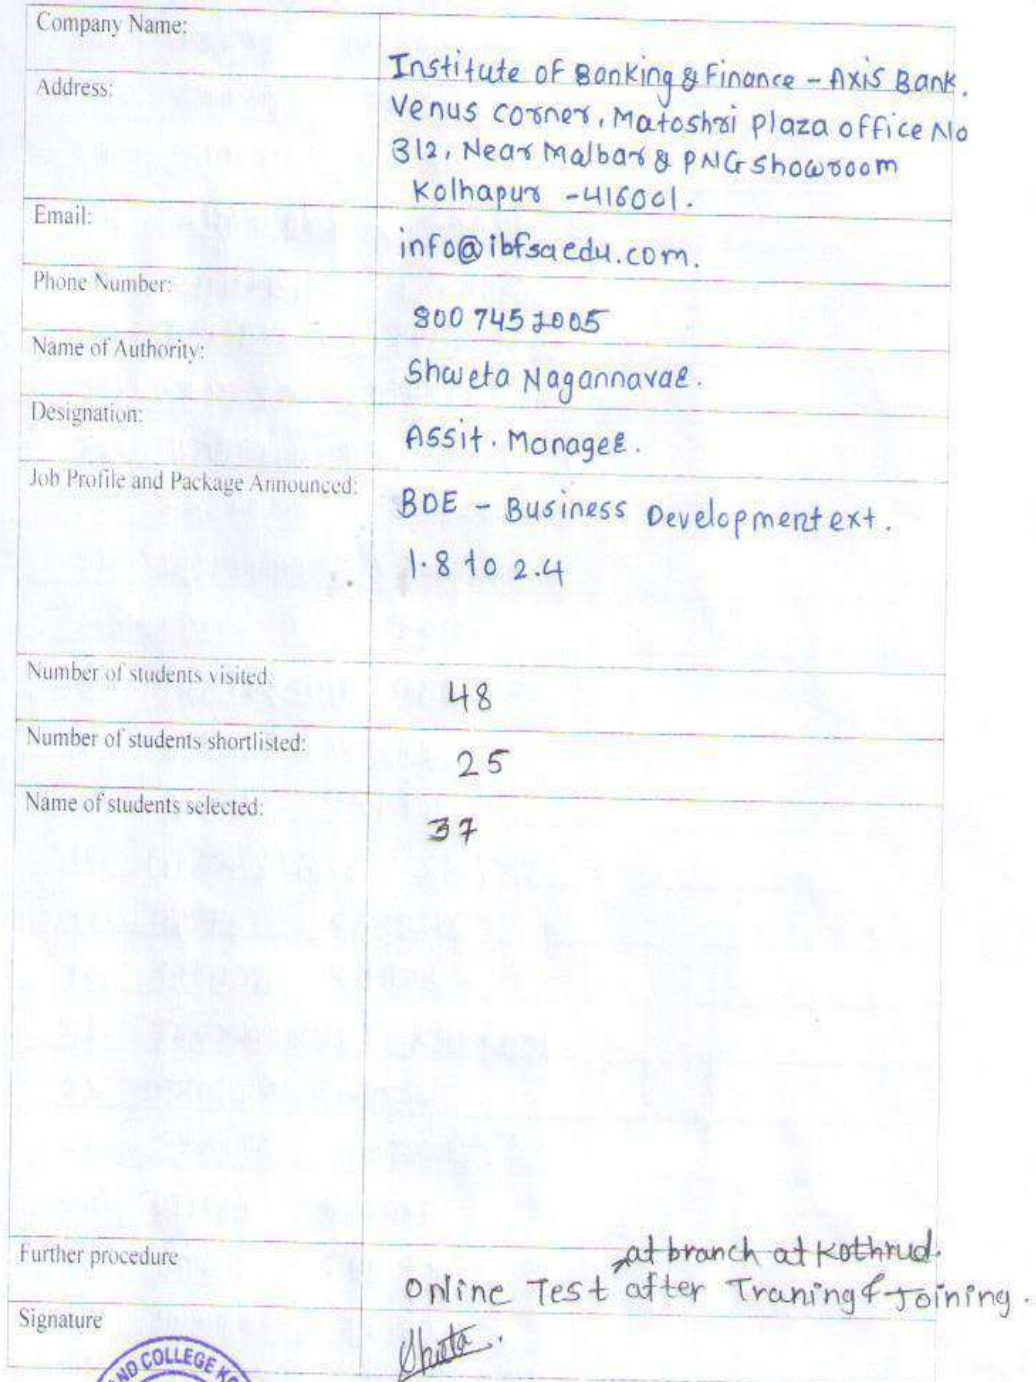 Company Name:
Institute of Banking & Finance - Axis Bank.
Address:
Venus corner, Matoshri plaza office No
312, Near Malbar & PNG showroom
Kolhapur - 416001.
Email:
info@ibfsaedu.com.
Phone Number:
800 745 2005
Name of Authority:
Shweta Nagannavar.
Designation:
Assit. Manager.
Job Profile and Package Announced:
BDE - Business Development ext.
1.8 to 2.4
Number of students visited:
48
Number of students shortlisted:
25
Name of students selected:
37
Further procedure
at branch at Kothrud.
Online Test after Traning & Joining.
Signature
Shweta.
COLLEGE